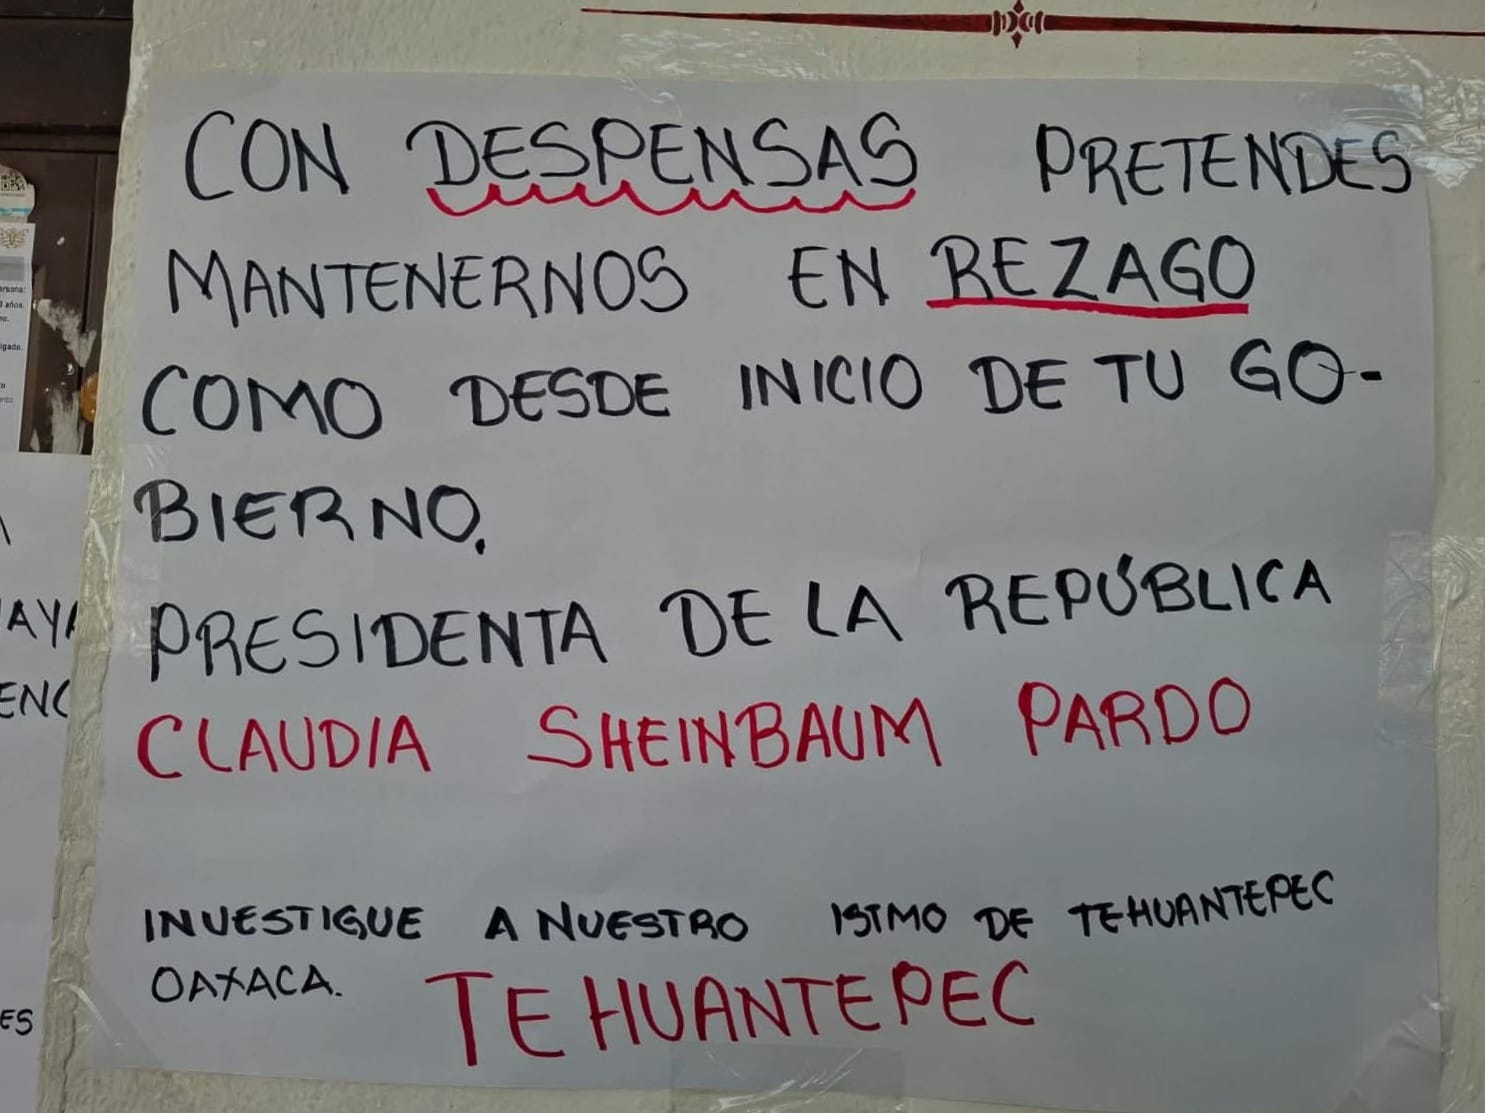 CON DESPENSAS PRETENDES
MANTENERNOS EN REZAGO
COMO DESDE INICIO DE TU GO-
BIERNO.
PRESIDENTA DE LA REPÚBLICA
CLAUDIA SHEINBAUM PARDO
INVESTIGUE A NUESTRO ISTMO DE TEHUANTEPEC
OAXACA.
TEHUANTEPEC